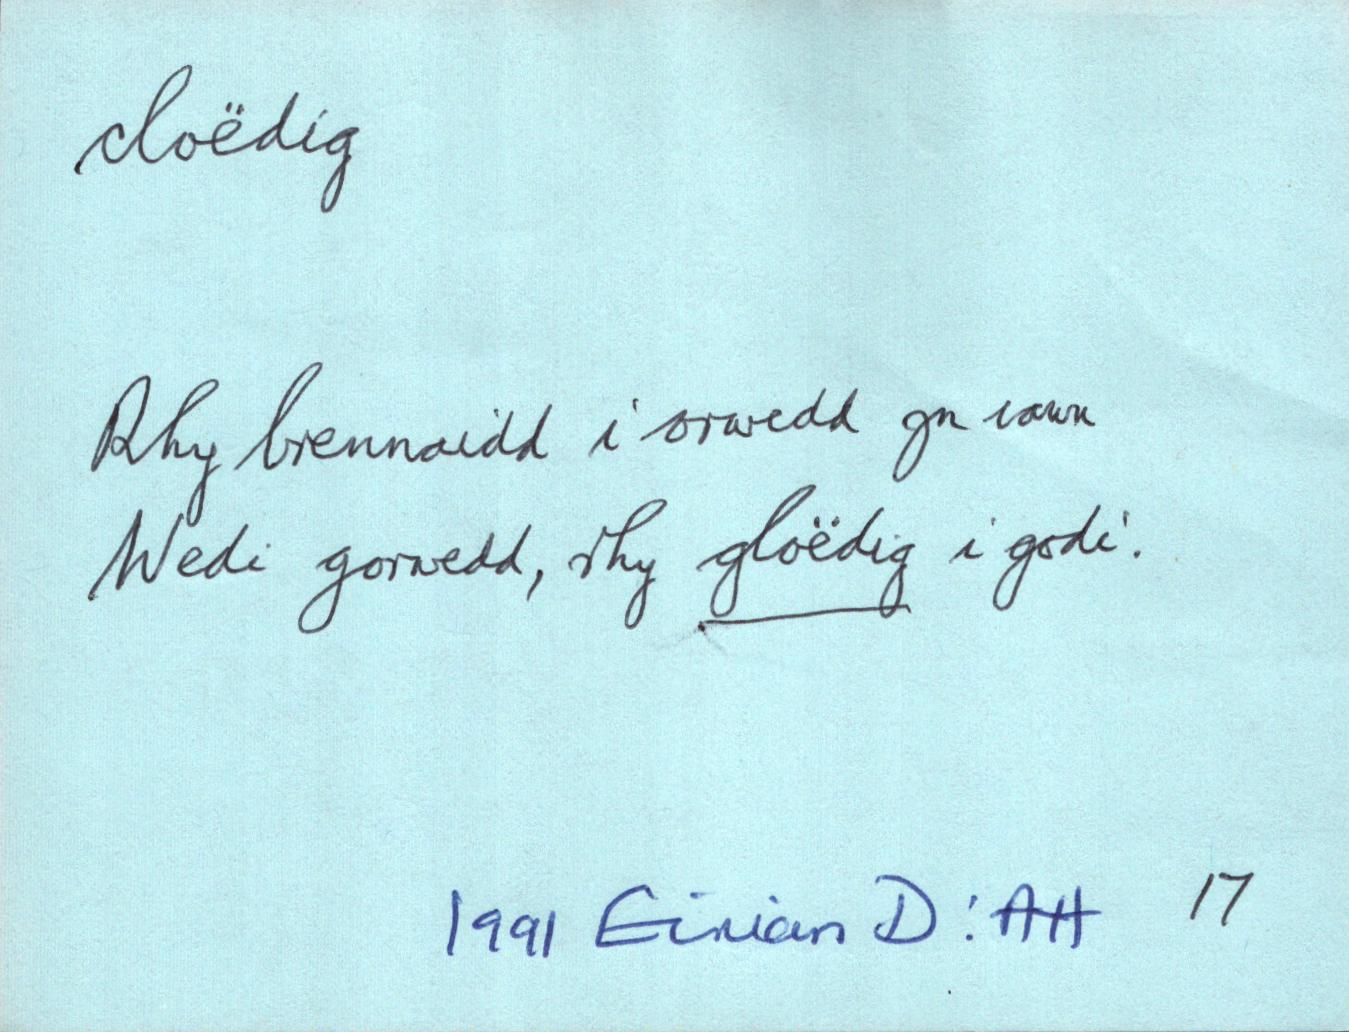 cloëdig
Rhy brennaidd i orwedd yn iawn
Wedi gorwedd, rhy gloëdig i godi.
1991 Eirian D: AH 17